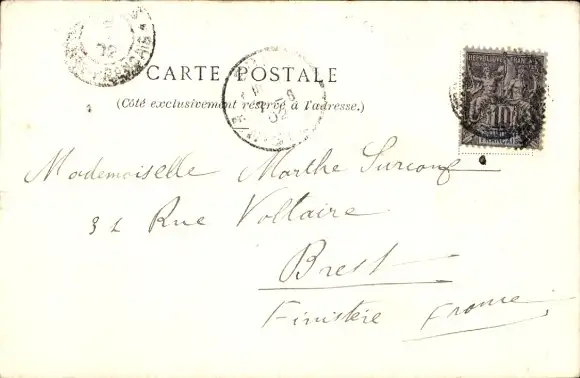 CARTE POSTALE
(Côté exclusivement réservé à l'adresse.)
RÉPUBLIQUE FRANÇAISE
10
Mademoiselle Marthe Surcouf
32 Rue Voltaire
Brest
Finistère France